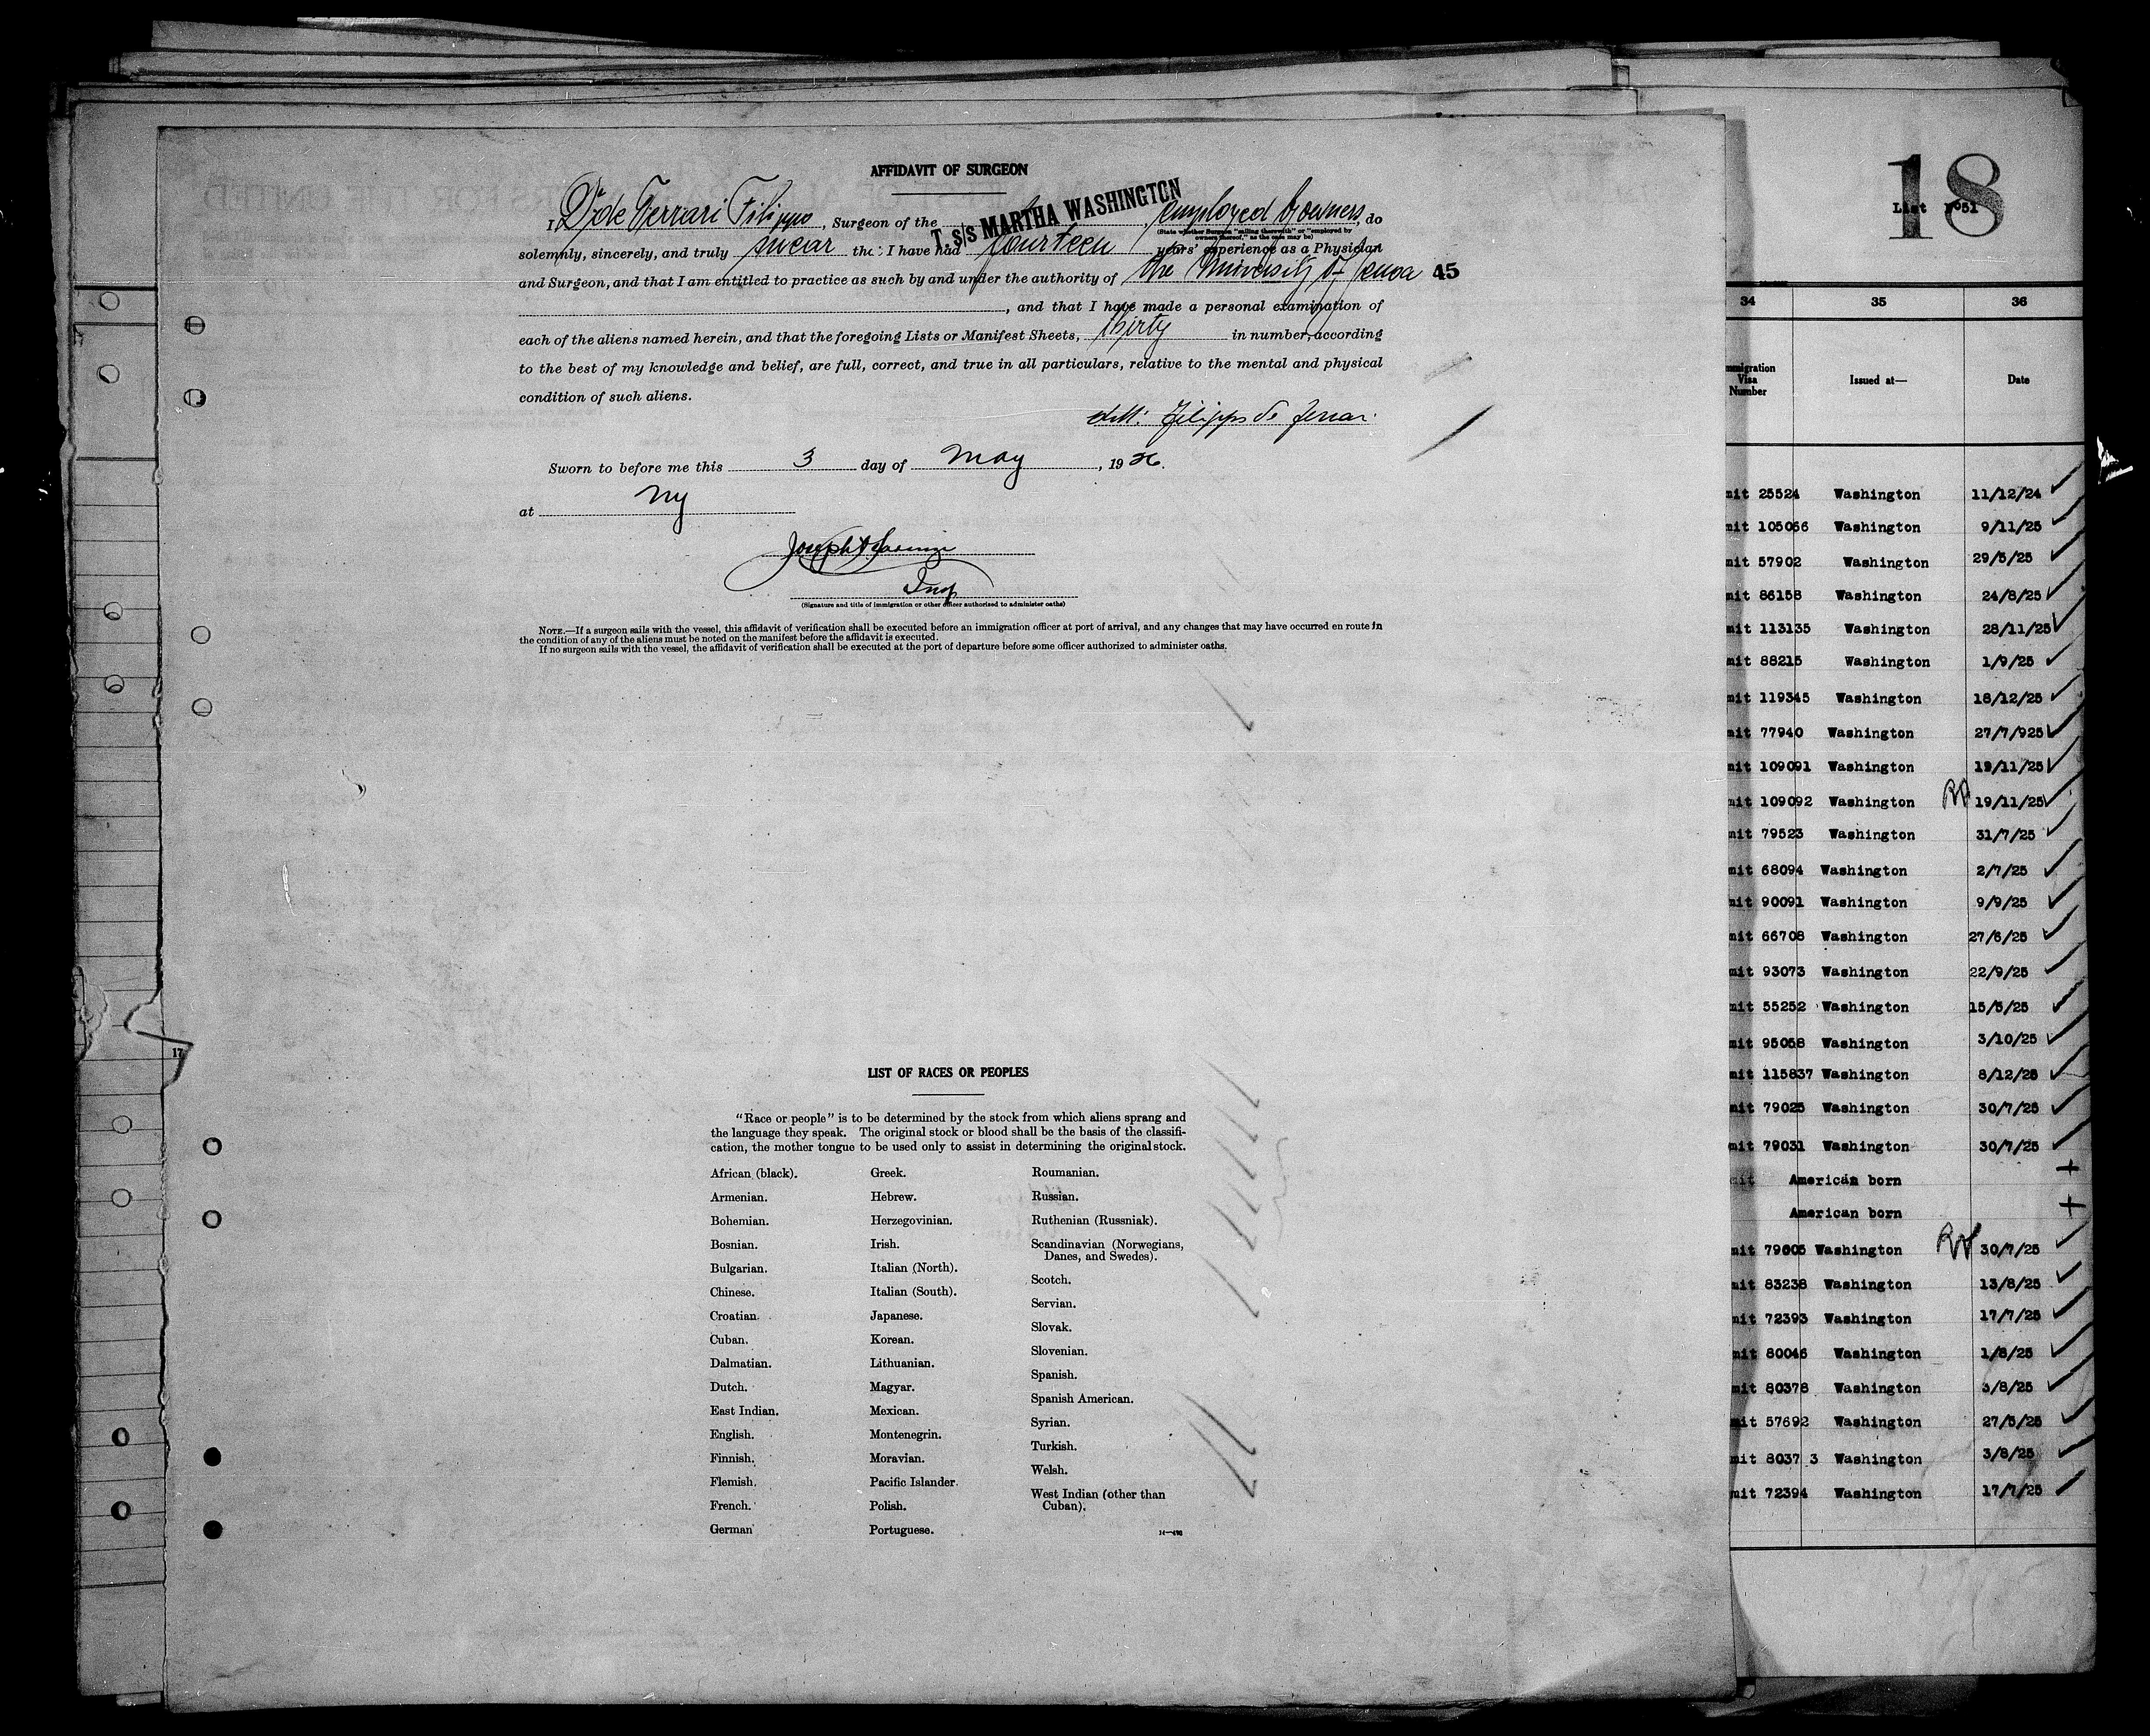 AFFIDAVIT OF SURGEON
I, Dr de Ferrari Filippo, Surgeon of the T. S/S MARTHA WASHINGTON, employed by owners, do
(State whether Surgeon "sailing therewith" or "employed by
owners thereof," as the case may be)
solemnly, sincerely, and truly swear that I have had fourteen years' experience as a Physician
and Surgeon, and that I am entitled to practice as such by and under the authority of the University of Genoa 45
, and that I have made a personal examination of
each of the aliens named herein, and that the foregoing Lists or Manifest Sheets, thirty in number, according
to the best of my knowledge and belief, are full, correct, and true in all particulars, relative to the mental and physical
condition of such aliens.
Filippo de Ferrari
Sworn to before me this 3 day of May, 1926.
at NY
Joseph
Insp
(Signature and title of immigration or other officer authorized to administer oaths)
NOTE.—If a surgeon sails with the vessel, this affidavit of verification shall be executed before an immigration officer at port of arrival, and any changes that may have occurred en route in
the condition of any of the aliens must be noted on the manifest before the affidavit is executed.
If no surgeon sails with the vessel, the affidavit of verification shall be executed at the port of departure before some officer authorized to administer oaths.
17
LIST OF RACES OR PEOPLES
"Race or people" is to be determined by the stock from which aliens sprang and
the language they speak. The original stock or blood shall be the basis of the classifi-
cation, the mother tongue to be used only to assist in determining the original stock.
African (black).
Armenian.
Bohemian.
Bosnian.
Bulgarian.
Chinese.
Croatian.
Cuban.
Dalmatian.
Dutch.
East Indian.
English.
Finnish.
Flemish.
French.
German
Greek.
Hebrew.
Herzegovinian.
Irish.
Italian (North).
Italian (South).
Japanese.
Korean.
Lithuanian.
Magyar.
Mexican.
Montenegrin.
Moravian.
Pacific Islander.
Polish.
Portuguese.
Roumanian.
Russian.
Ruthenian (Russniak).
Scandinavian (Norwegians,
Danes, and Swedes).
Scotch.
Servian.
Slovak.
Slovenian.
Spanish.
Spanish American.
Syrian.
Turkish.
Welsh.
West Indian (other than
Cuban).
18
List No 51
34 35 36
mmigration
Visa
Number
Issued at—
Date
mit 25524 Washington 11/12/24
mit 105056 Washington 9/11/25
mit 57902 Washington 29/5/25
mit 86158 Washington 24/8/25
mit 113135 Washington 28/11/25
mit 88215 Washington 1/9/25
mit 119345 Washington 18/12/25
mit 77940 Washington 27/7/925
mit 109091 Washington 19/11/25
mit 109092 Washington 19/11/25
mit 79523 Washington 31/7/25
mit 68094 Washington 2/7/25
mit 90091 Washington 9/9/25
mit 66708 Washington 27/6/25
mit 93073 Washington 22/9/25
mit 55252 Washington 15/5/25
mit 95058 Washington 3/10/25
mit 115837 Washington 8/12/25
mit 79025 Washington 30/7/25
mit 79031 Washington 30/7/25
mit American born +
American born +
mit 79605 Washington 30/7/25
mit 83238 Washington 13/8/25
mit 72393 Washington 17/7/25
mit 80046 Washington 1/8/25
mit 80378 Washington 3/8/25
mit 57692 Washington 27/5/25
mit 8037 3 Washington 3/8/25
mit 72394 Washington 17/7/25